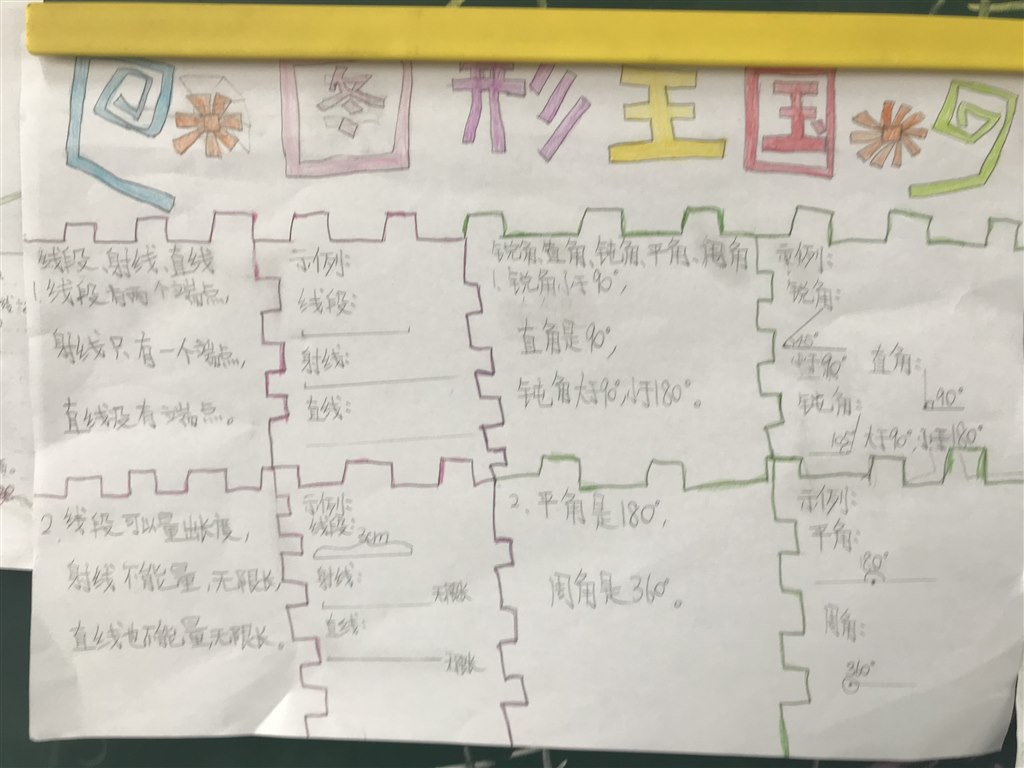 图形王国
线段、射线、直线
1.线段有两个端点,
射线只有一个端点,
直线没有端点。
示例:
线段:
射线:
直线:
锐角、直角、钝角、平角、周角
1.锐角小于90°,
直角是90°,
钝角大于90°,小于180°。
示例:
锐角:
小于90°
直角:
90°
钝角:
大于90°,小于180°
2.线段可以量出长度,
射线不能量,无限长,
直线也不能量,无限长。
示例:
线段:
3cm
射线:
无限长
直线:
无限长
2.平角是180°,
周角是360°。
示例:
平角:
180°
周角:
360°